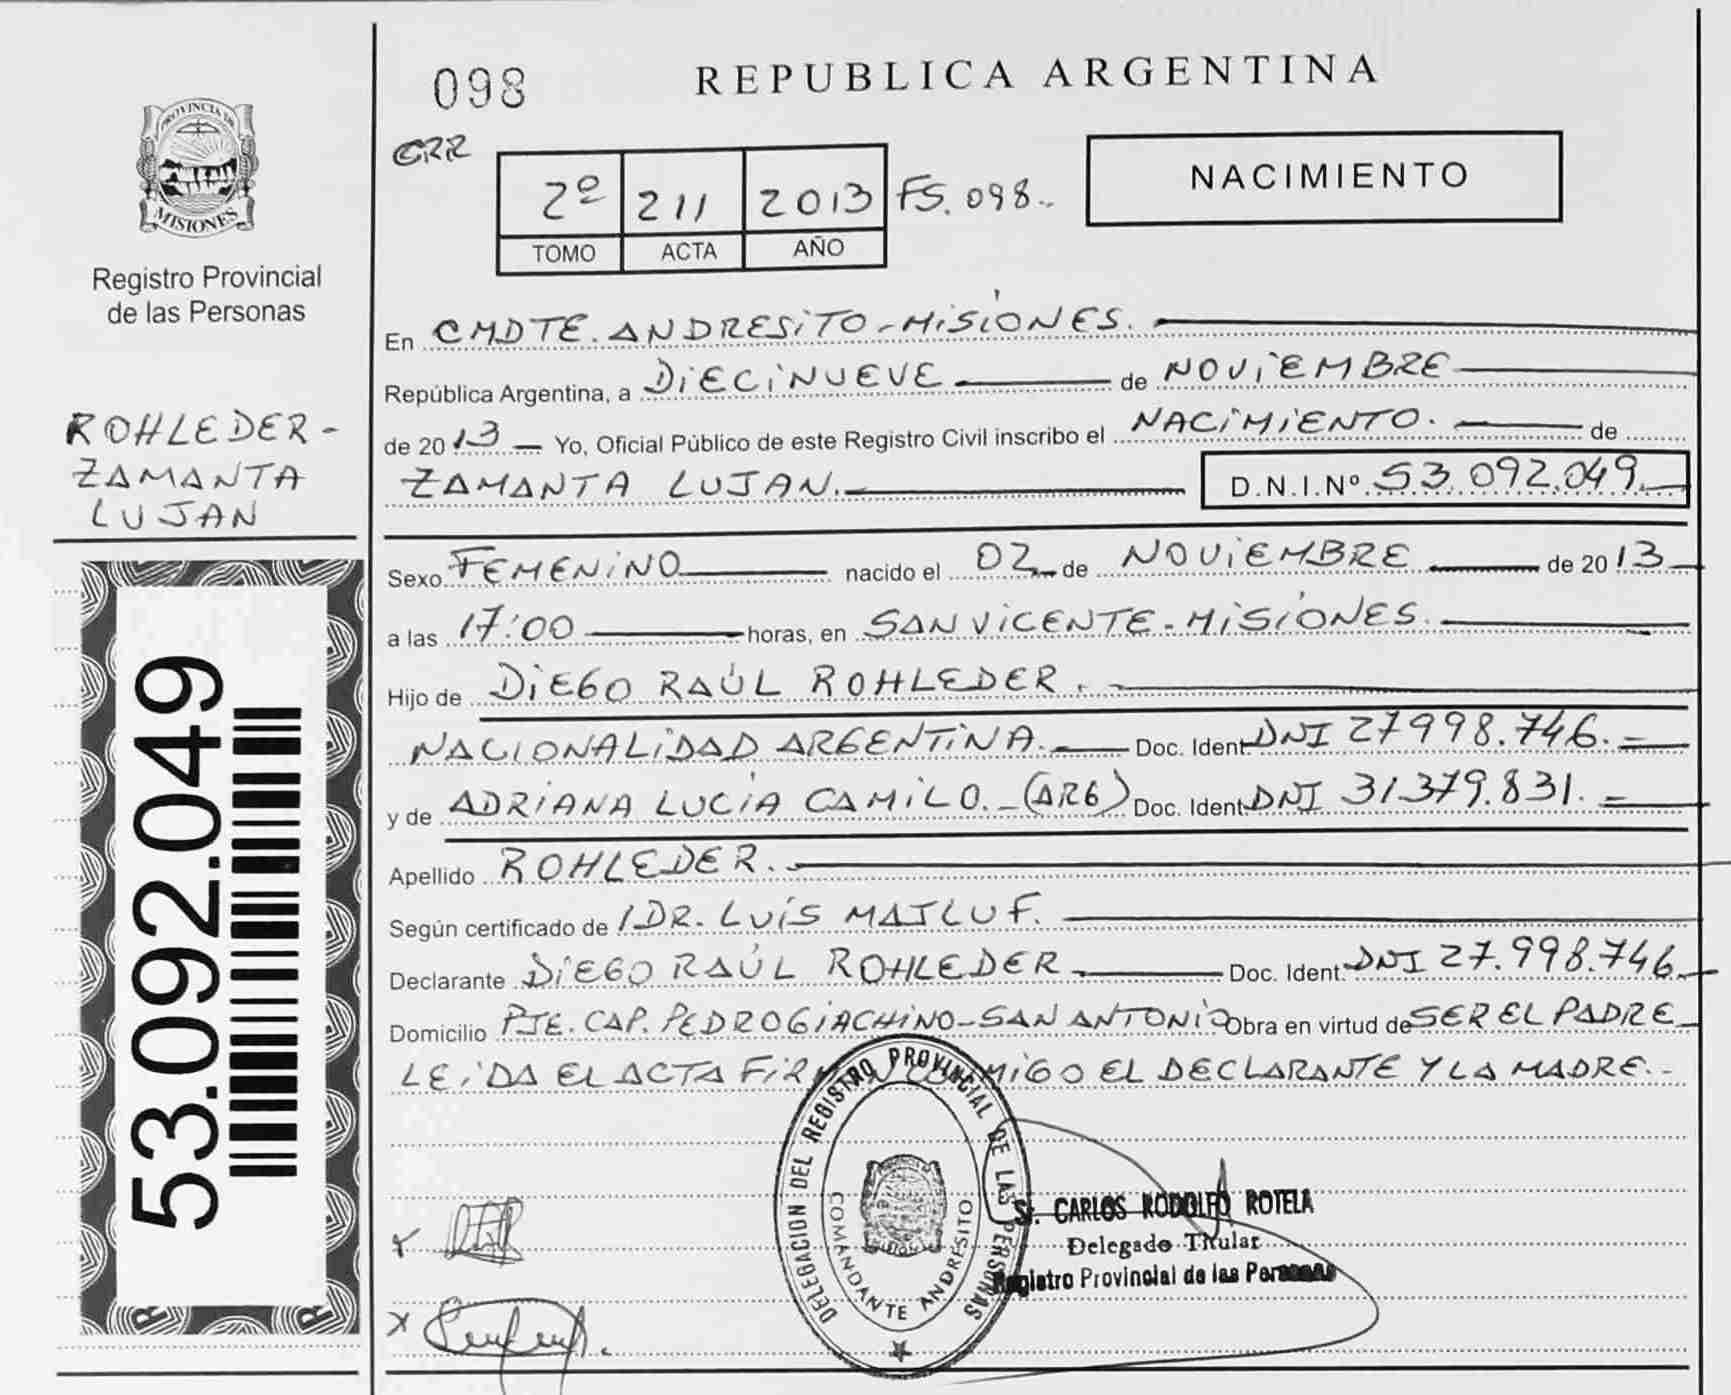 098
REPUBLICA ARGENTINA
PROVINCIA DE
MISIONES
CRR
2º 211 2013 FS. 098.
TOMO ACTA AÑO
NACIMIENTO
Registro Provincial
de las Personas
ROHLEDER-
ZAMANTA
LUJAN
53.092.049
En CMDTE. ANDRESITO-MISIONES.
República Argentina, a DIECINUEVE de NOVIEMBRE
de 2013 Yo, Oficial Público de este Registro Civil inscribo el NACIMIENTO. de
ZAMANTA LUJAN. D.N.I.Nº 53.092.049
Sexo FEMENINO nacido el 02 de NOVIEMBRE de 2013
a las 17:00 horas, en SAN VICENTE-MISIONES.
Hijo de DIEGO RAÚL ROHLEDER.
NACIONALIDAD ARGENTINA. Doc. Ident. DNI 27998.746.
y de ADRIANA LUCÍA CAMILO.-(ARG) Doc. Ident. DNI 31379.831.
Apellido ROHLEDER.
Según certificado de DR. LUÍS MAJLUF.
Declarante DIEGO RAÚL ROHLEDER Doc. Ident. DNI 27.998.746.
Domicilio PJE. CAP. PEDRO GIACHINO-SAN ANTONIO Obra en virtud de SER EL PADRE
LEIDA EL ACTA EL DECLARANTE Y LA MADRE.-
DELEGACION DEL REGISTRO PROVINCIAL DE LAS PERSONAS
COMANDANTE ANDRESITO
Sr. CARLOS RODOLFO ROTELA
Delegado Titular
Registro Provincial de las Personas